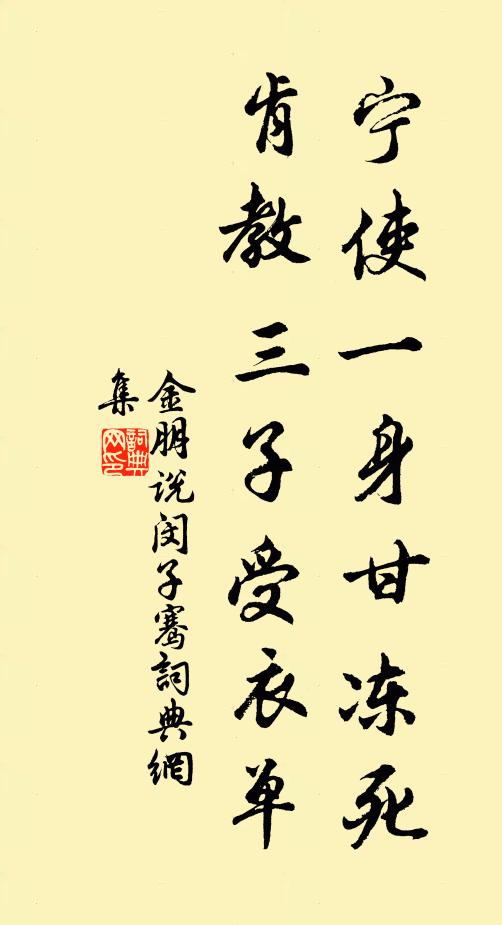 宁使一身甘冻死
肯教三子受衣单
金朋说闵子骞詞典網
集
詞典
网印